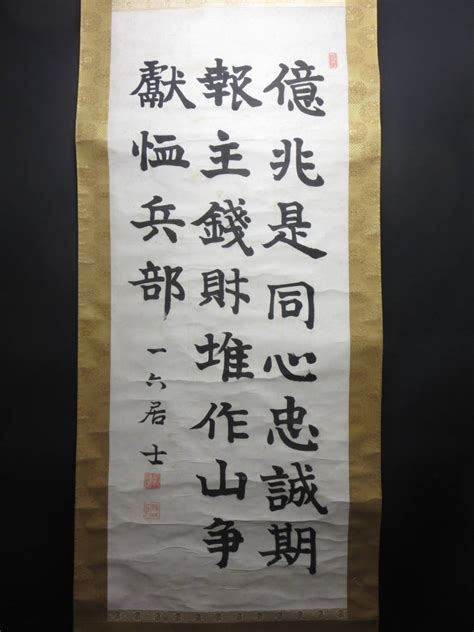 億兆是同心忠誠期
報主錢財堆作山争
獻恤兵部
一六居士